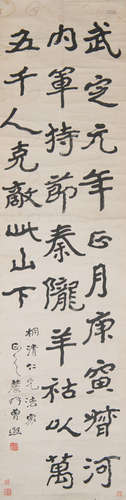 武定元年正月庚寅督河
内軍持節秦隴羊祜以萬
五千人克敵此山下
桐清仁兄法家
正之 農髯曾熙